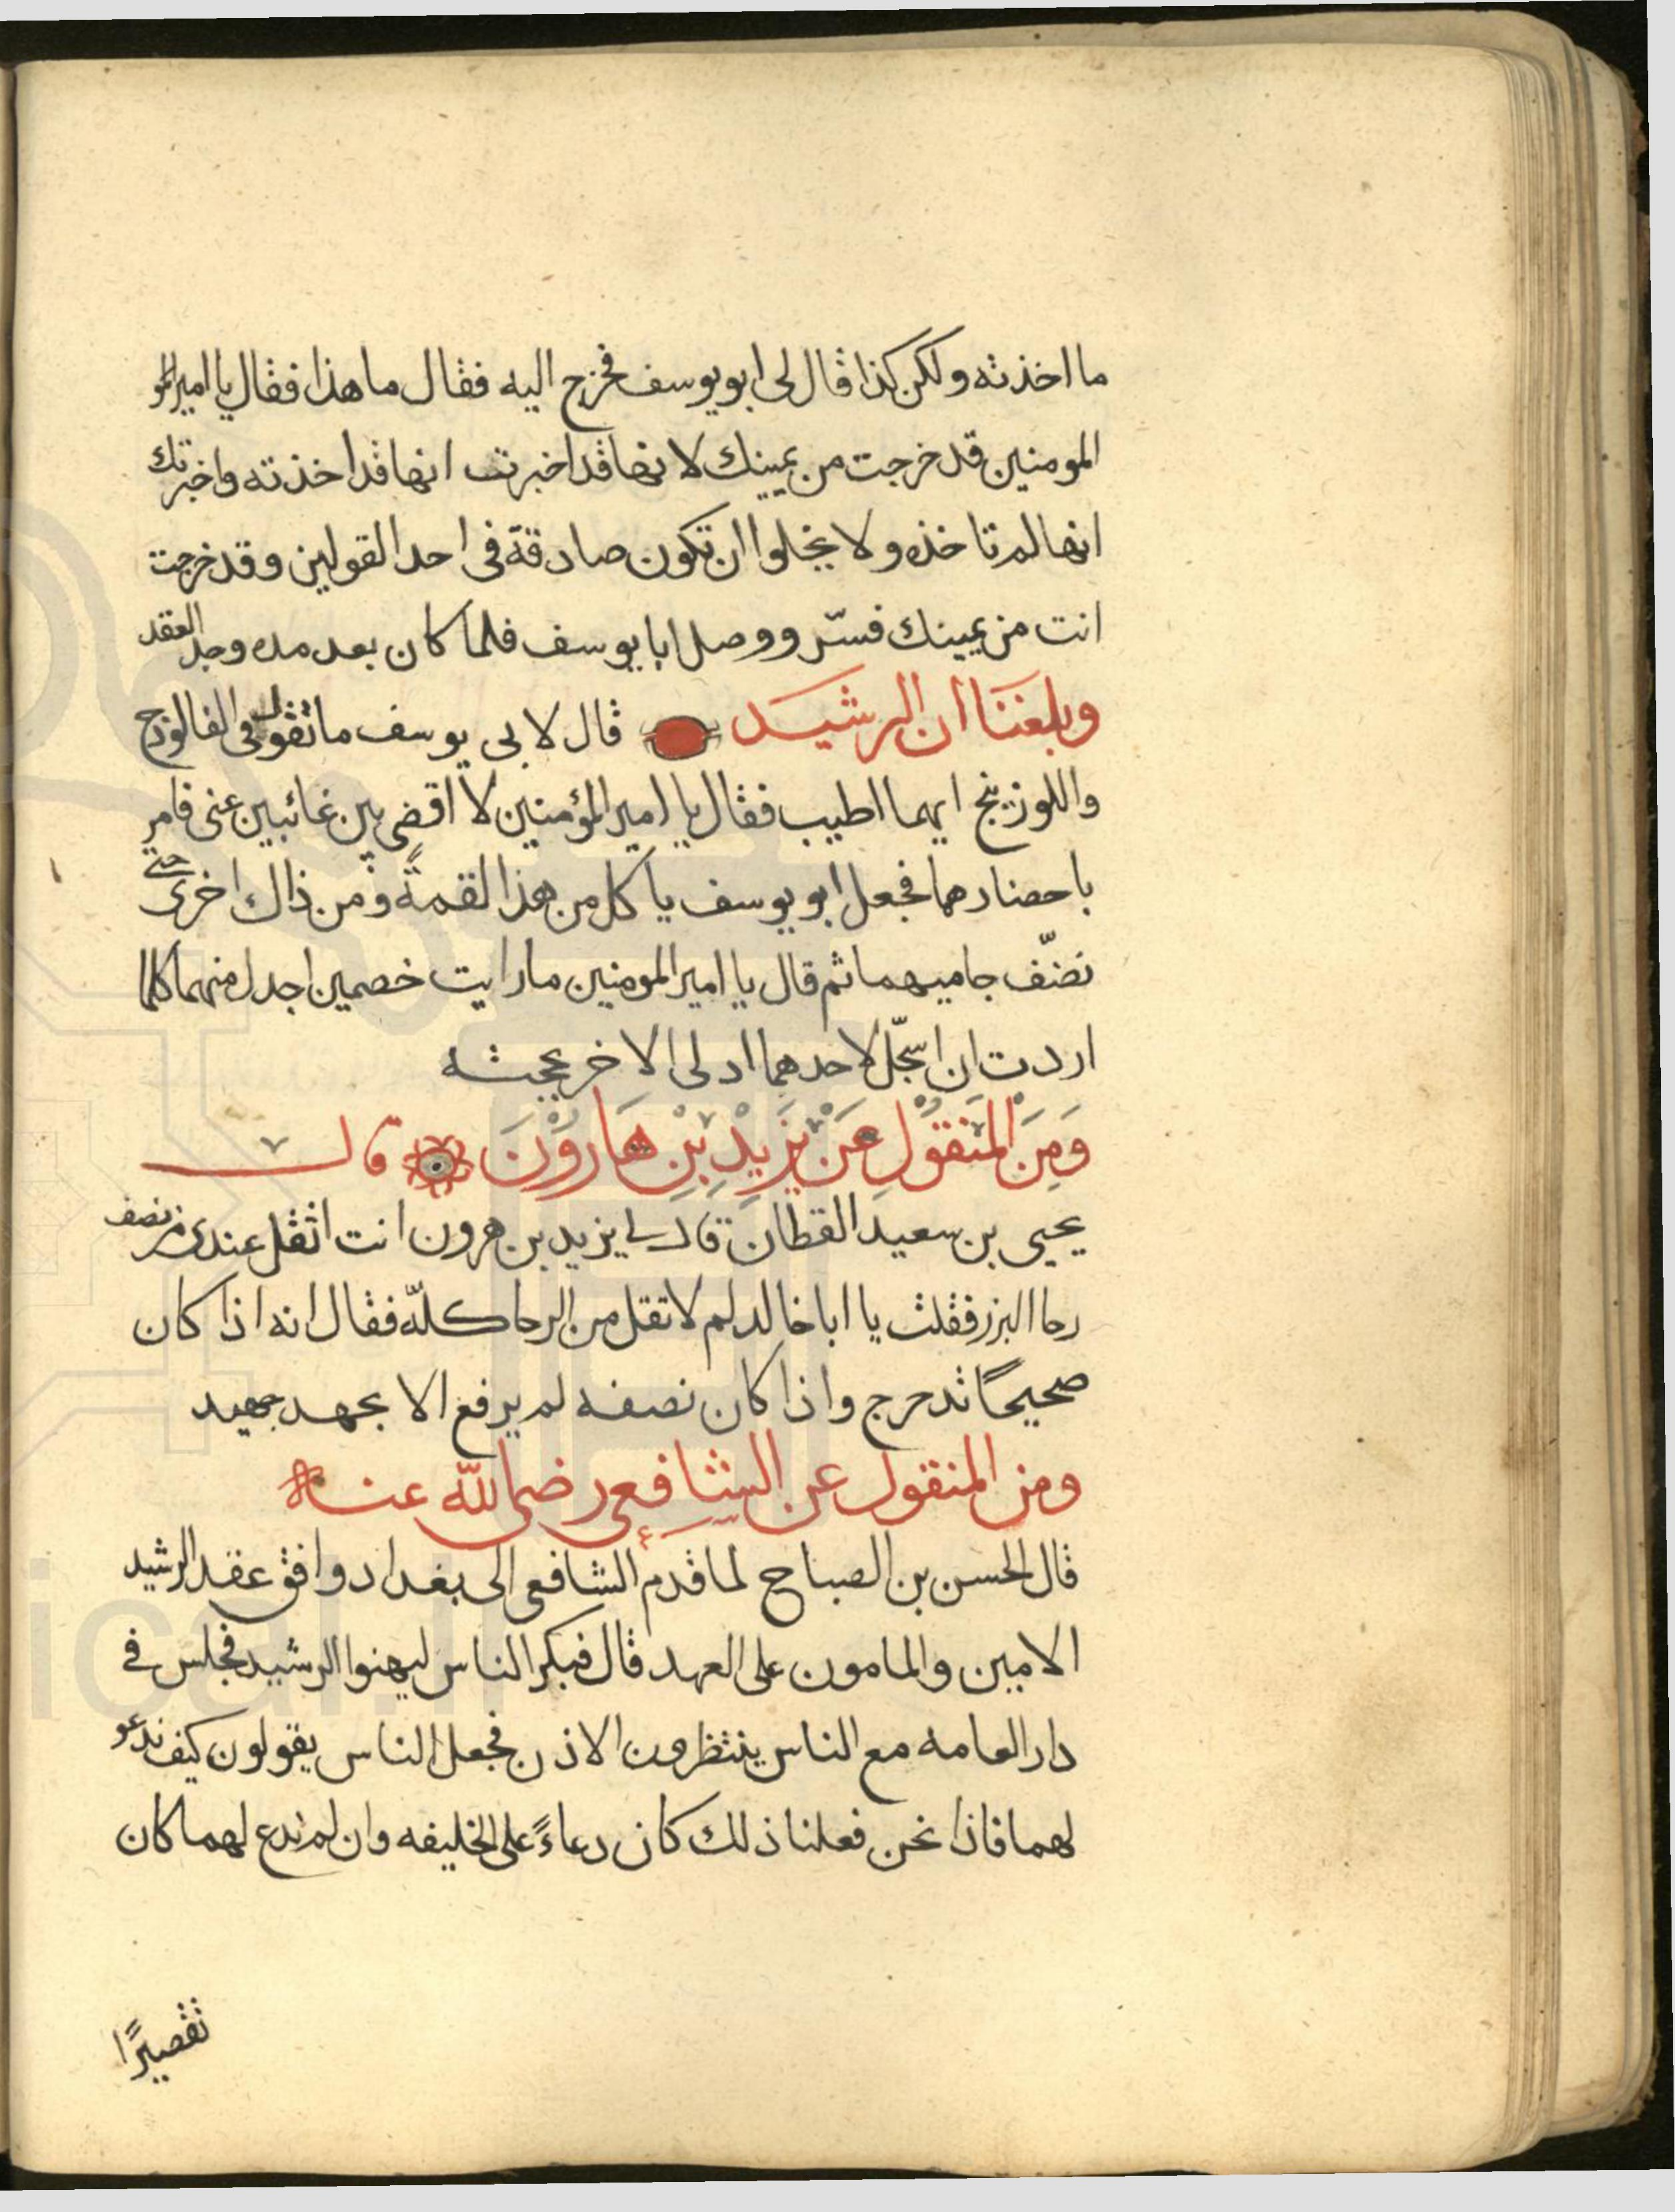 ما اخذته ولكن كذا قال لى ابو يوسف فخرج اليه فقال ما هذا فقال يا امير المو
المومنين قد خرجت من يمينك لانها قد اخبرت انها قد اخذته واخبرتك
انها لم تاخذه ولا يخلوا ان تكون صادقة فى احد القولين وقد خرجت
انت من يمينك فسّر ووصل ابا يوسف فلما كان بعد مده وجد العقد
وبلغنا ان الرشيد قال لابى يوسف ما تقول فى الفالوذج
واللوزينج ايهما اطيب فقال يا امير المؤمنين لا اقضى بين غائبين عنى فامر
باحضارهما فجعل ابو يوسف ياكل من هذا لقمةً ومن ذاك اخرى حتى
نصّف جاميهما ثم قال يا امير المومنين ما رايت خصمين اجدل منهما كلما
اردت ان اسجّل لاحدهما ادلى الاخر بحجته
وَمِنَ المَنقوُلِ عَنْ يَزِيْدِ بْنِ هَاروُنَ قال
يحيى بن سعيد القطان قال لى يزيد بن هرون انت اثقل عندى من نصف
رحا البزر فقلت يا ابا خالد لم لا تقل من الرحا كلّه فقال انه اذا كان
صحيحًا تدحرج واذا كان نصفه لم يرفع الا بجهد جهيد
ومن المنقول عن الشافعى رضى الله عنه
قال الحسن بن الصباح لما قدم الشافعى الى بغداد وافق عقد الرشيد
الامين والمامون على العهد قال فبكر الناس ليهنوا الرشيد فجلس فى
دار العامه مع الناس ينتظرون الاذن فجعل الناس يقولون كيف ندعو
لهما فاذا نحن فعلنا ذلك كان دعاءً على الخليفه وان لم ندع لهما كان
تقصيرًا